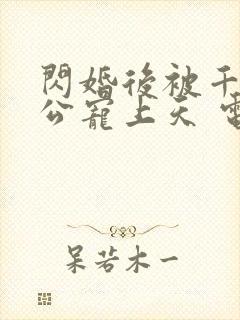 閃婚後被千
公寵上天
呆若木一